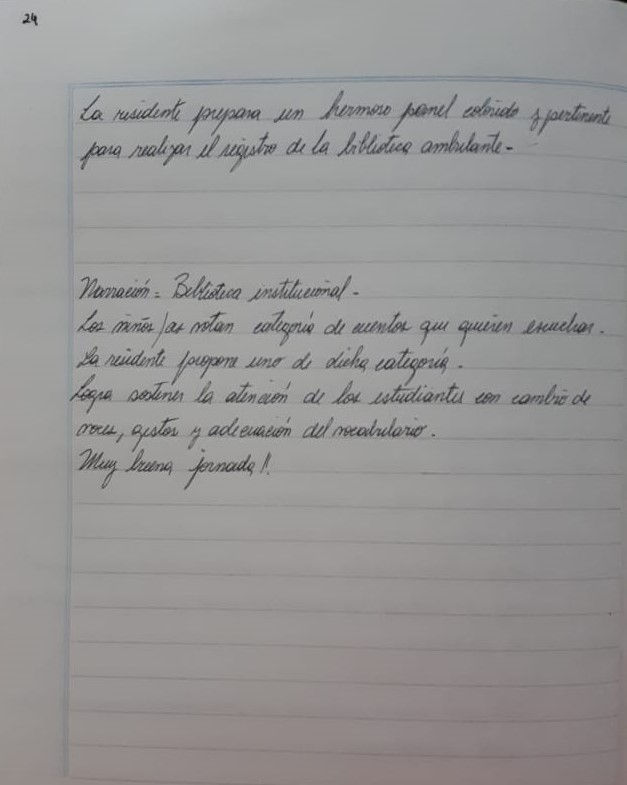 24
La residente prepara un hermoso panel colorido y pertinente
para realizar el registro de la biblioteca ambulante-
Narración= Biblioteca institucional-
Los niños/as votan categoría de cuentos que quieren escuchar.
La residente propone uno de dicha categoría.
Logra sostener la atención de los estudiantes con cambio de
voces, gestos y adecuación del vocabulario.
Muy buena jornada!!